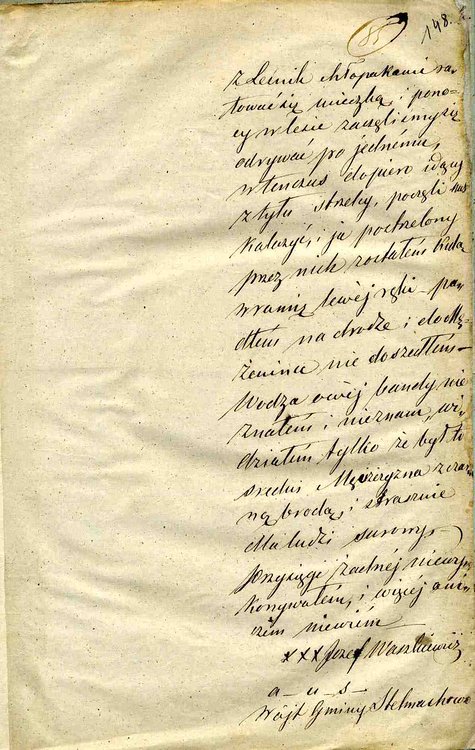 85
148.
z Leśnik chłopakami ra-
tować się ucieczką, i pono-
cy w lesie zaczęliśmy się
odrywać po jednému,
wtenczas dopiero idący
z tyłu strzelcy, poczęli nas
kaluzyć, i ja postrzelony
przez nich zostałem kulą
w ramię lewéj ręki – pa-
dłem na drodze i do Mę-
żenina nie doszedłem –
Wodza owéj bandy nie
znałem i nieznam, wi-
działem tylko że był to
sredni Męszczyzna z czar-
ną brodą, i strasznie
dla ludzi surowy –
Przysięgę żadnéj niewy-
konywałem, i więcéj ani-
czem niewiem –
XXX Józef Waszkiewicz
a – u – s –
Wójt Gminy Stelmachowo